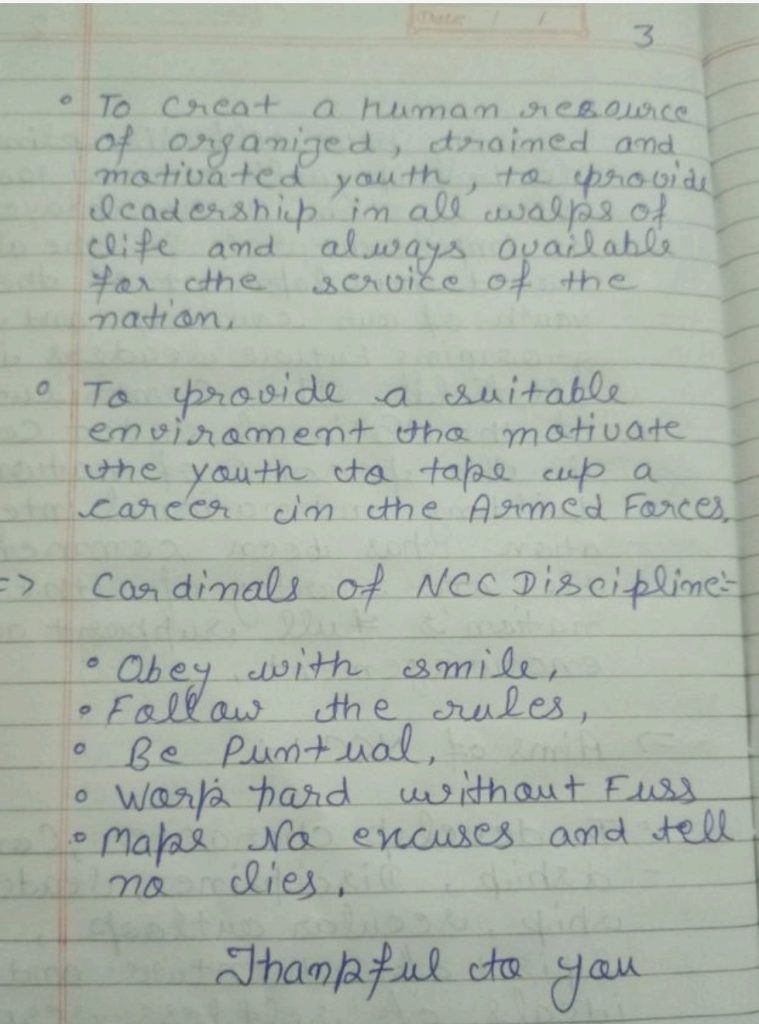 Date / /
3
• To creat a human resource
of organized, trained and
motivated youth, to provide
leadership in all walks of
life and always available
for the service of the
nation.
• To provide a suitable
enviroment tho motivate
the youth to take up a
career in the Armed Forces.
=> Cardinals of NCC Discipline:-
• Obey with smile,
• Follow the rules,
• Be Puntual,
• Work hard without Fuss
• Make No encuses and tell
no lies.
Thankful to you